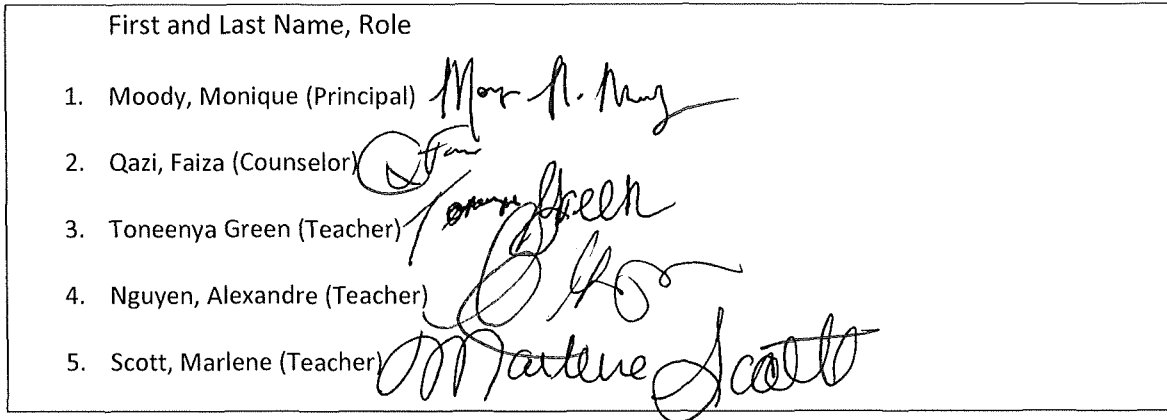 First and Last Name, Role
1. Moody, Monique (Principal)
2. Qazi, Faiza (Counselor)
3. Toneenya Green (Teacher) Green
4. Nguyen, Alexandre (Teacher)
5. Scott, Marlene (Teacher) Marlene Scott